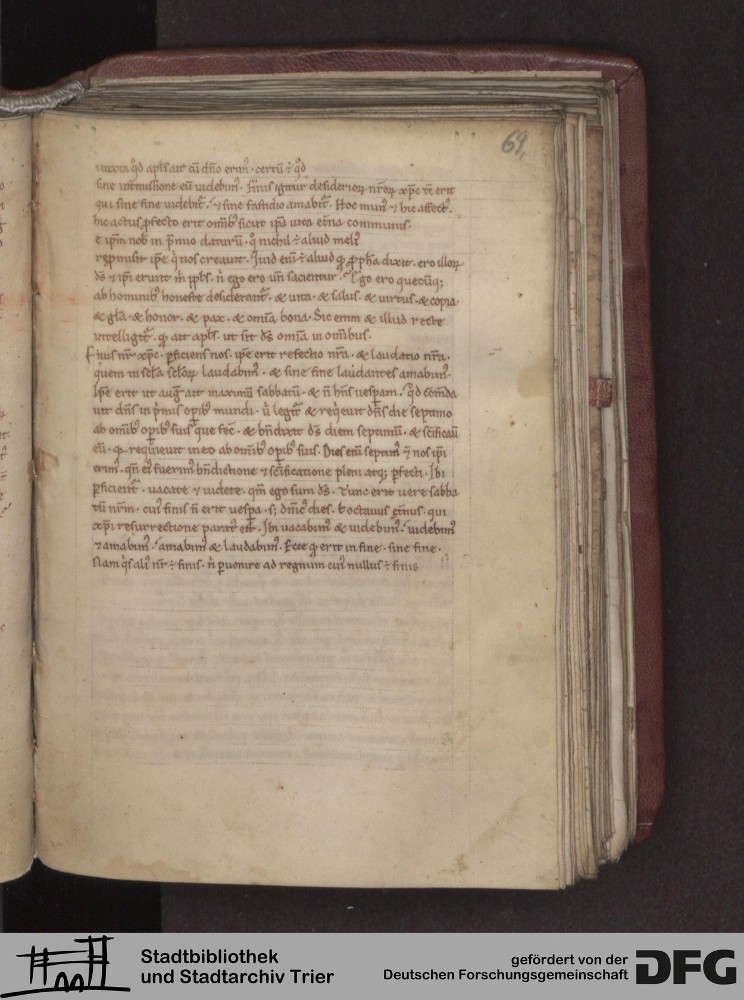 69,
iuxta q̇d apl's ait cū dn̄o erim᷒. certū ÷ q̇d
fine int̄missione eū uidebim᷒. finis igitur desiderioꝝ nr̄oꝝ xp̄c erit
qui sine fine uidebit᷑. ⁊ sine fastidio amabit᷑. Hoc mun᷒ ⁊ hic affect᷒.
hic actus ꝓfecto erit omīb᷒ sicut ip̄a uita et̄na communis.
e ip̄m nob̄ in p̄mio daturū. q̇ nichil ÷ aliud meli᷒
repmisit ip̄e q̇ nos creauit. Quid eni ÷ aliud ꝙ ꝓph̄a dixit. ero illoꝝ
d̄s ⁊ ip̄i erunt m̄ ipl̄s. n̄ ego ero un̄ sacientur. Ego ero quecūq;
ab hominib᷒ honeste desiderant᷑. & uita. & salus. & uirtus. & copia.
& gl̄a. & honor. & pax. & omia bona. Sic enim & illud recte
intelligit᷑. ꝙ ait apl̄s. ut sit d̄s omīa in omnibus.
Finis nr̄ xp̄c. ꝑficiens nos. ip̄e erit refectio nr̄a. & laudatio nr̄a.
quem in sc̄la sc̄loꝝ laudabim᷒. & sine fine laudantes amabim᷒.
Ipse erit ut aug᷑ ait maximū sabbatū. & n̄ hn̄s uesꝑam. q̇d com̄da
uit dn̄s in p̄mis opib᷒ mundi. u̇ legit᷑ & reqͥeuit dn̄s die septimo
ab omīb᷒ opib᷒ suis que fec̄. & bn̄dixit d̄s diem septimū. & sc̄ificauī
eū. ꝙ reqͥeuit in eo ab omīb᷒ opib᷒ suis. Dies eni septim᷒ ⁊ nos ip̄i
erim᷒. qn̄ ei᷒ fuerim᷒ bn̄dictione ⁊ sc̄ificatione pleni atq; ꝑfecti. Ibi
ꝑficient᷑. uacate ⁊ uidete. qm̄ ego sum d̄s. Tunc erit uere sabba
tū nr̄m. cui᷒ finis n̄ erit uesꝑa. s; dn̄ic᷒ dies. & octauus et̄nus. qui
xp̄i resurrectione parat᷒ est. Ibi uacabim᷒ & uidebim᷒. uidebim᷒
⁊ amabim᷒. amabim᷒ & laudabim᷒. Ecce ꝙ erit in fine. sine fine.
Nam q̇s ali᷒ nr̄ ÷ finis. n̄ ꝑuenire ad regnum cui᷒ nullus ÷ finis
Stadtbibliothek
und Stadtarchiv Trier
gefördert von der
Deutschen Forschungsgemeinschaft
DFG